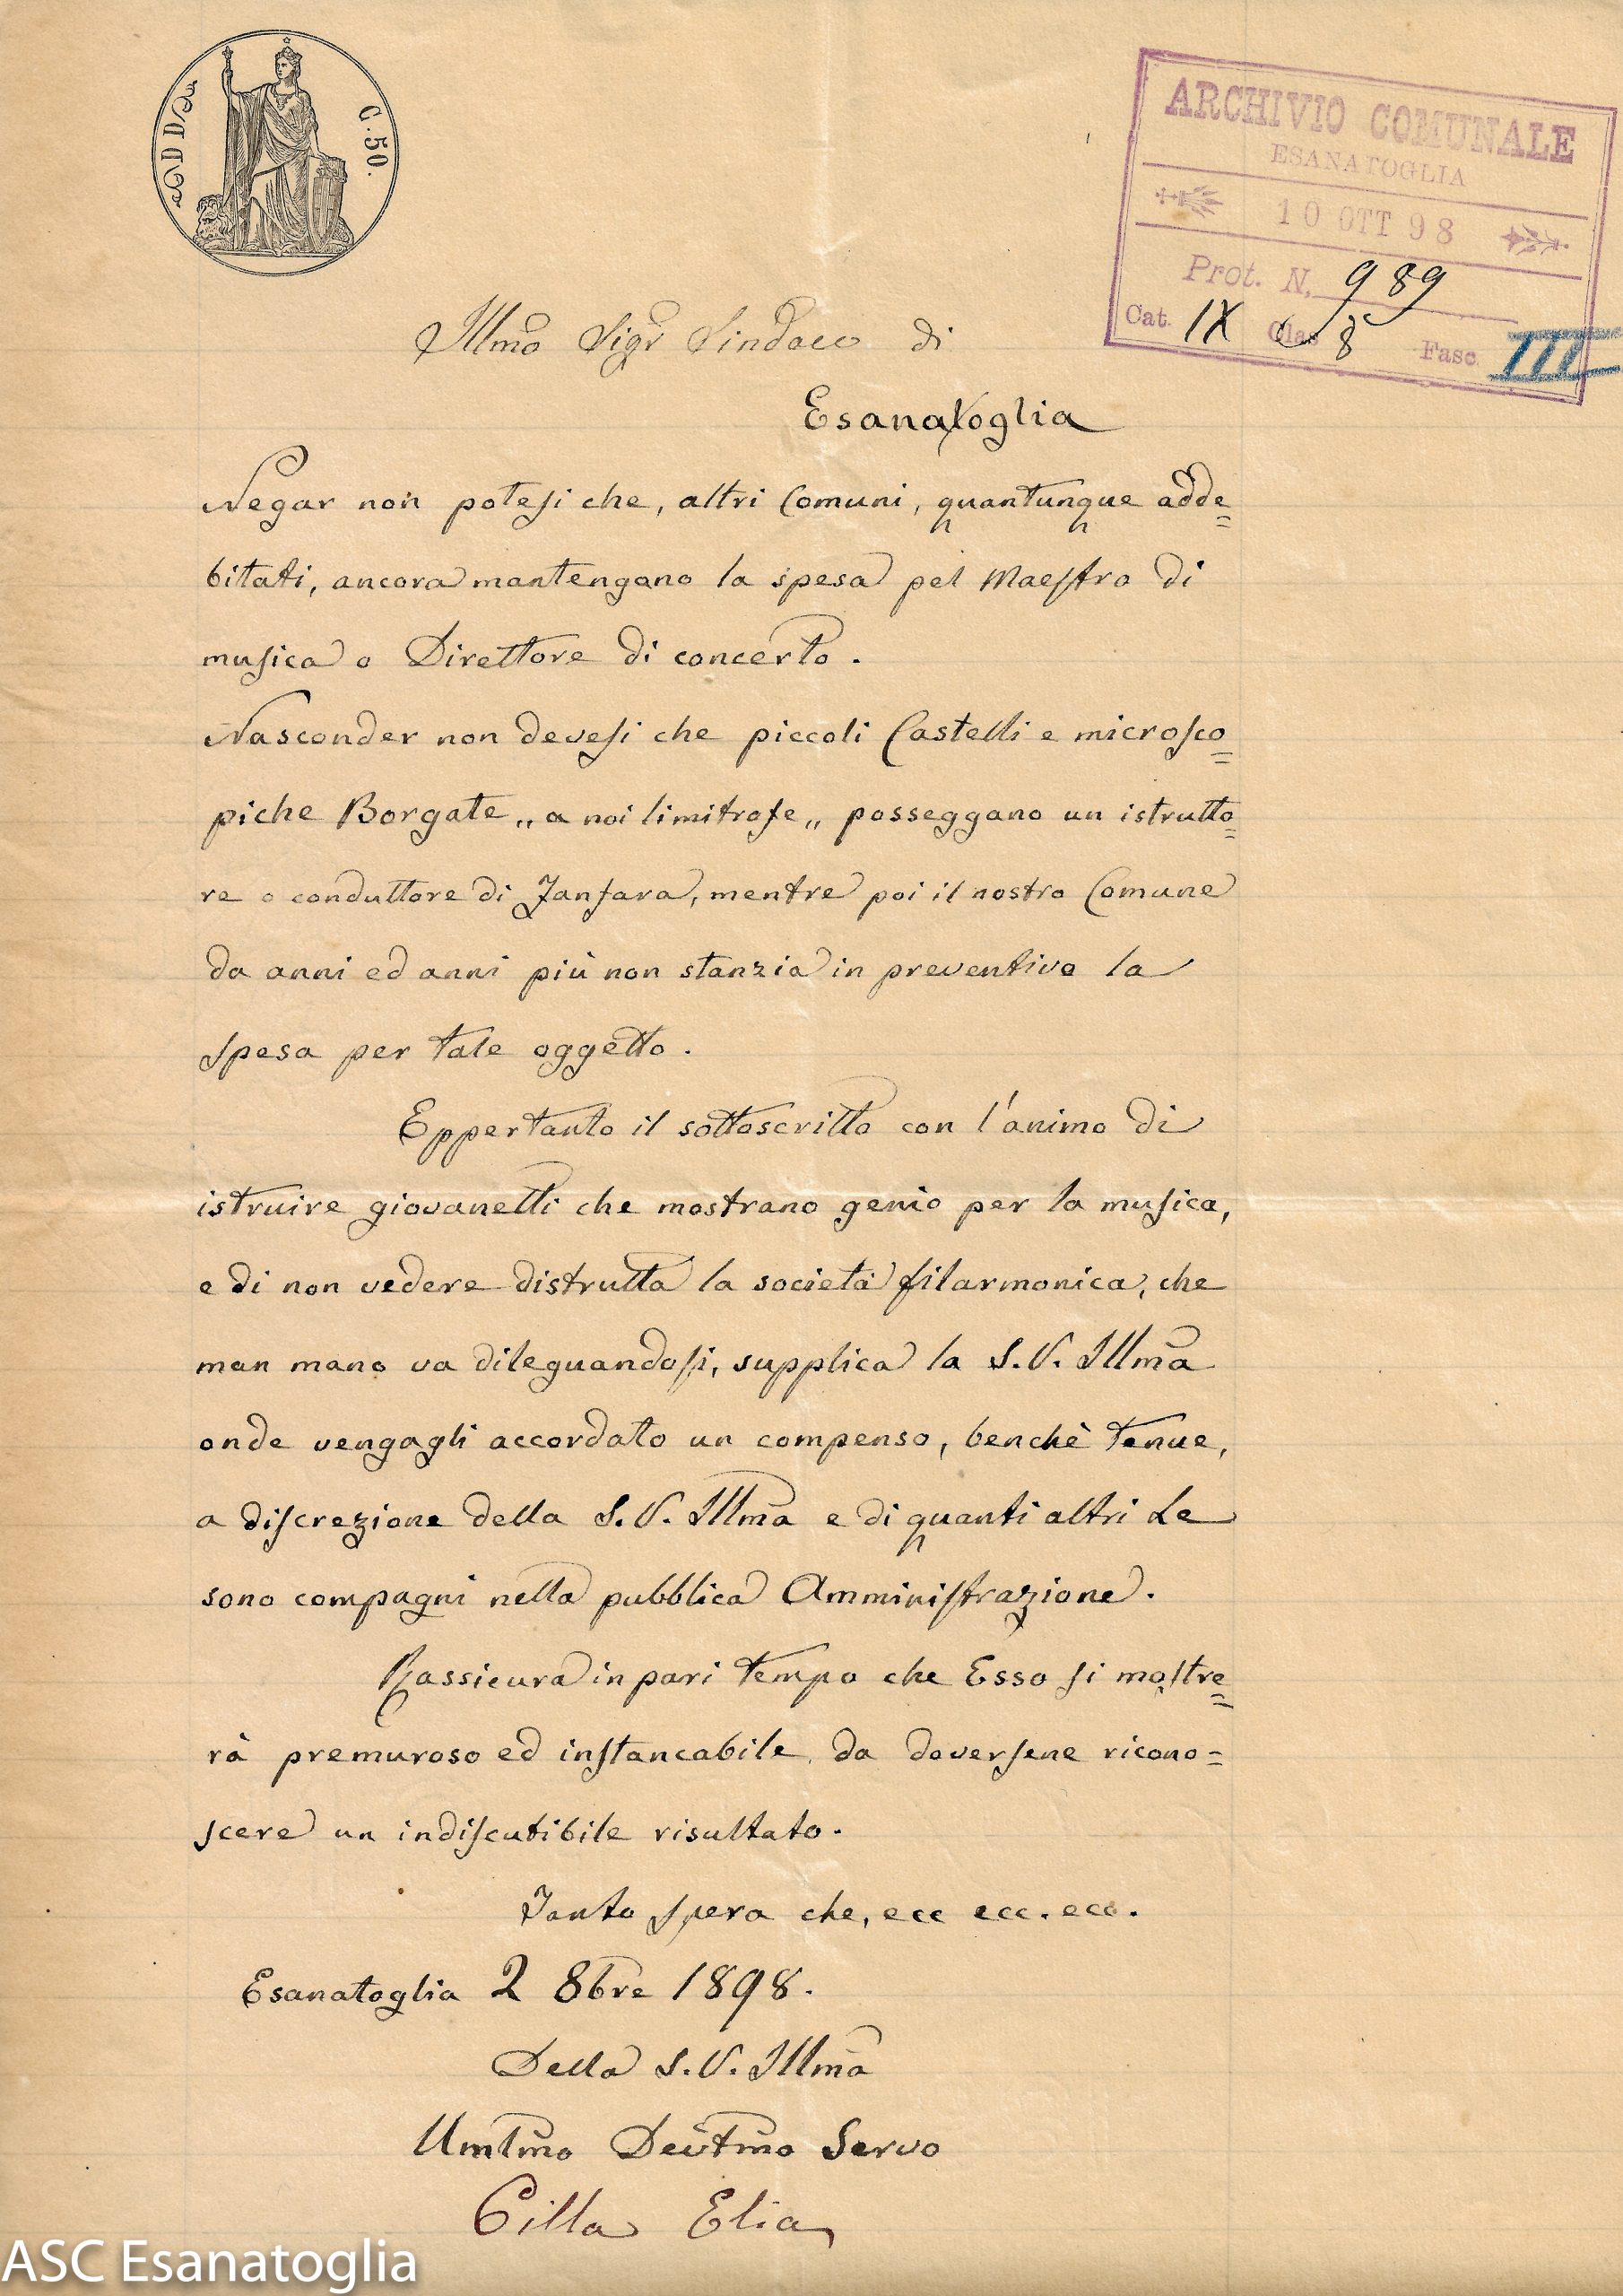 C. 50.
ARCHIVIO COMUNALE
ESANATOGLIA
10 OTT 98
Prot. N. 989
Cat. IX Clas 8 Fasc. III
Illmo Sigr Sindaco di
Esanatoglia
Negar non potesi che, altri Comuni, quantunque adde=
bitati, ancora mantengano la spesa pel Maestro di
musica o Direttore di concerto.
Nasconder non devesi che piccoli Castelli e microsco=
piche Borgate „ a noi limitrofe „ posseggano un istrutto=
re o conduttore di Fanfara, mentre poi il nostro Comune
da anni ed anni più non stanzia in preventivo la
spesa per tale oggetto.
Eppertanto il sottoscritto con l'animo di
istruire giovanetti che mostrano genio per la musica,
e di non vedere distrutta la società filarmonica, che
man mano va dileguandosi, supplica la S. V. Illma
onde vengagli accordato un compenso, benchè tenue,
a discrezione della S. V. Illma e di quanti altri Le
sono compagni nella pubblica Amministrazione.
Rassicura in pari tempo che Esso si mostre=
rà premuroso ed instancabile da doversene ricono=
scere un indiscutibile risultato.
Tanto spera che, ecc ecc. ecc.
Esanatoglia 2 8bre 1898.
Della S. V. Illma
Umlmo Devtmo Servo
Cilla Elia
ASC Esanatoglia